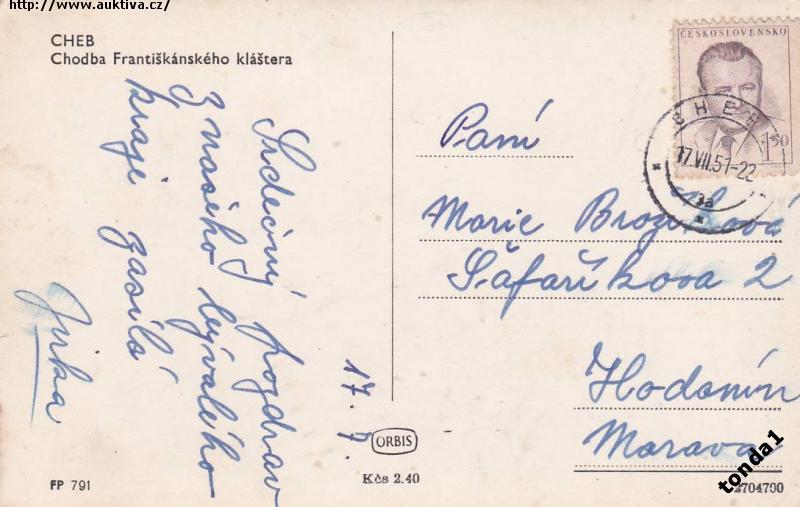 http://www.auktiva.cz/
CHEB
Chodba Františkánského kláštera
Srdečný pozdrav
z našeho bývalého
kraje zasílá
Jirka
17. 7.
ČESKOSLOVENSKO
1.50
CHEB
17.VII.51-22
3a
Paní
Marie
Šafaříkova 2
Hodonín
Morava
ORBIS
Kčs 2.40
FP 791
tonda1